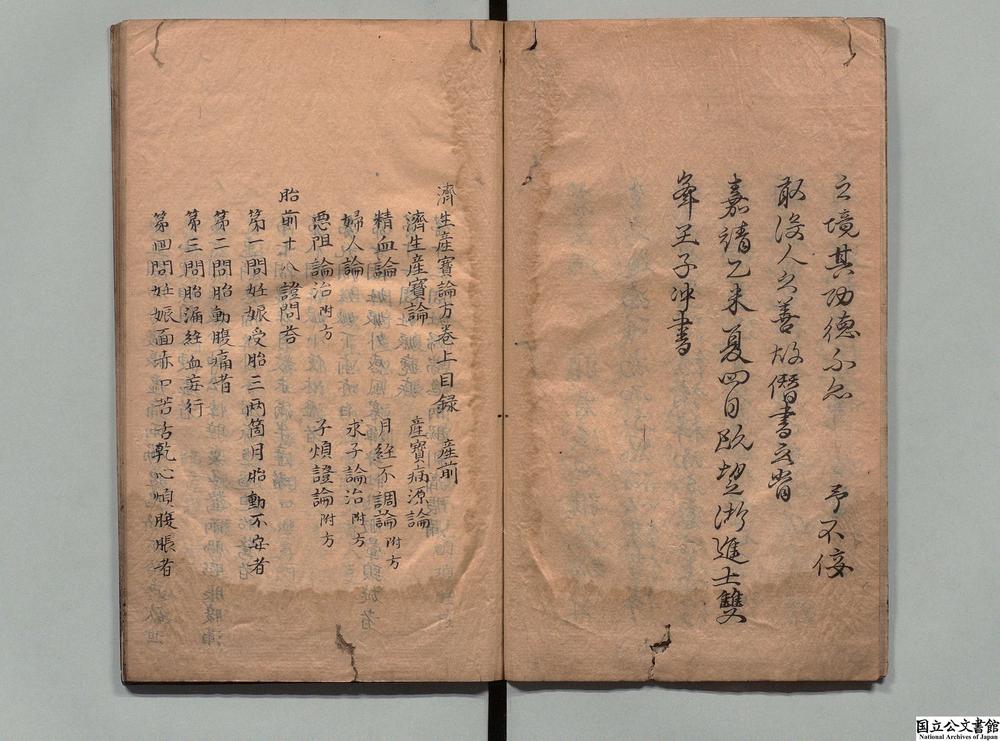 之境其功德不忘 予不佞
敢没人之善故僭書文首
嘉靖乙未夏四日既望浙進士雙
峯王子沖書
濟生産寶論方卷上目録 産前
濟生産寶論 産寶病源論
精血論 月経不調論附方
婦人論 求子論治附方
悪阻論治附方 子煩證論附方
胎前十八證問答
第一問妊娠受胎三两箇月胎動不安者
第二問胎動腹痛者
第三問胎漏経血妄行
第四問妊娠面赤口苦舌乾心煩腹脹者
国立公文書館
National Archives of Japan